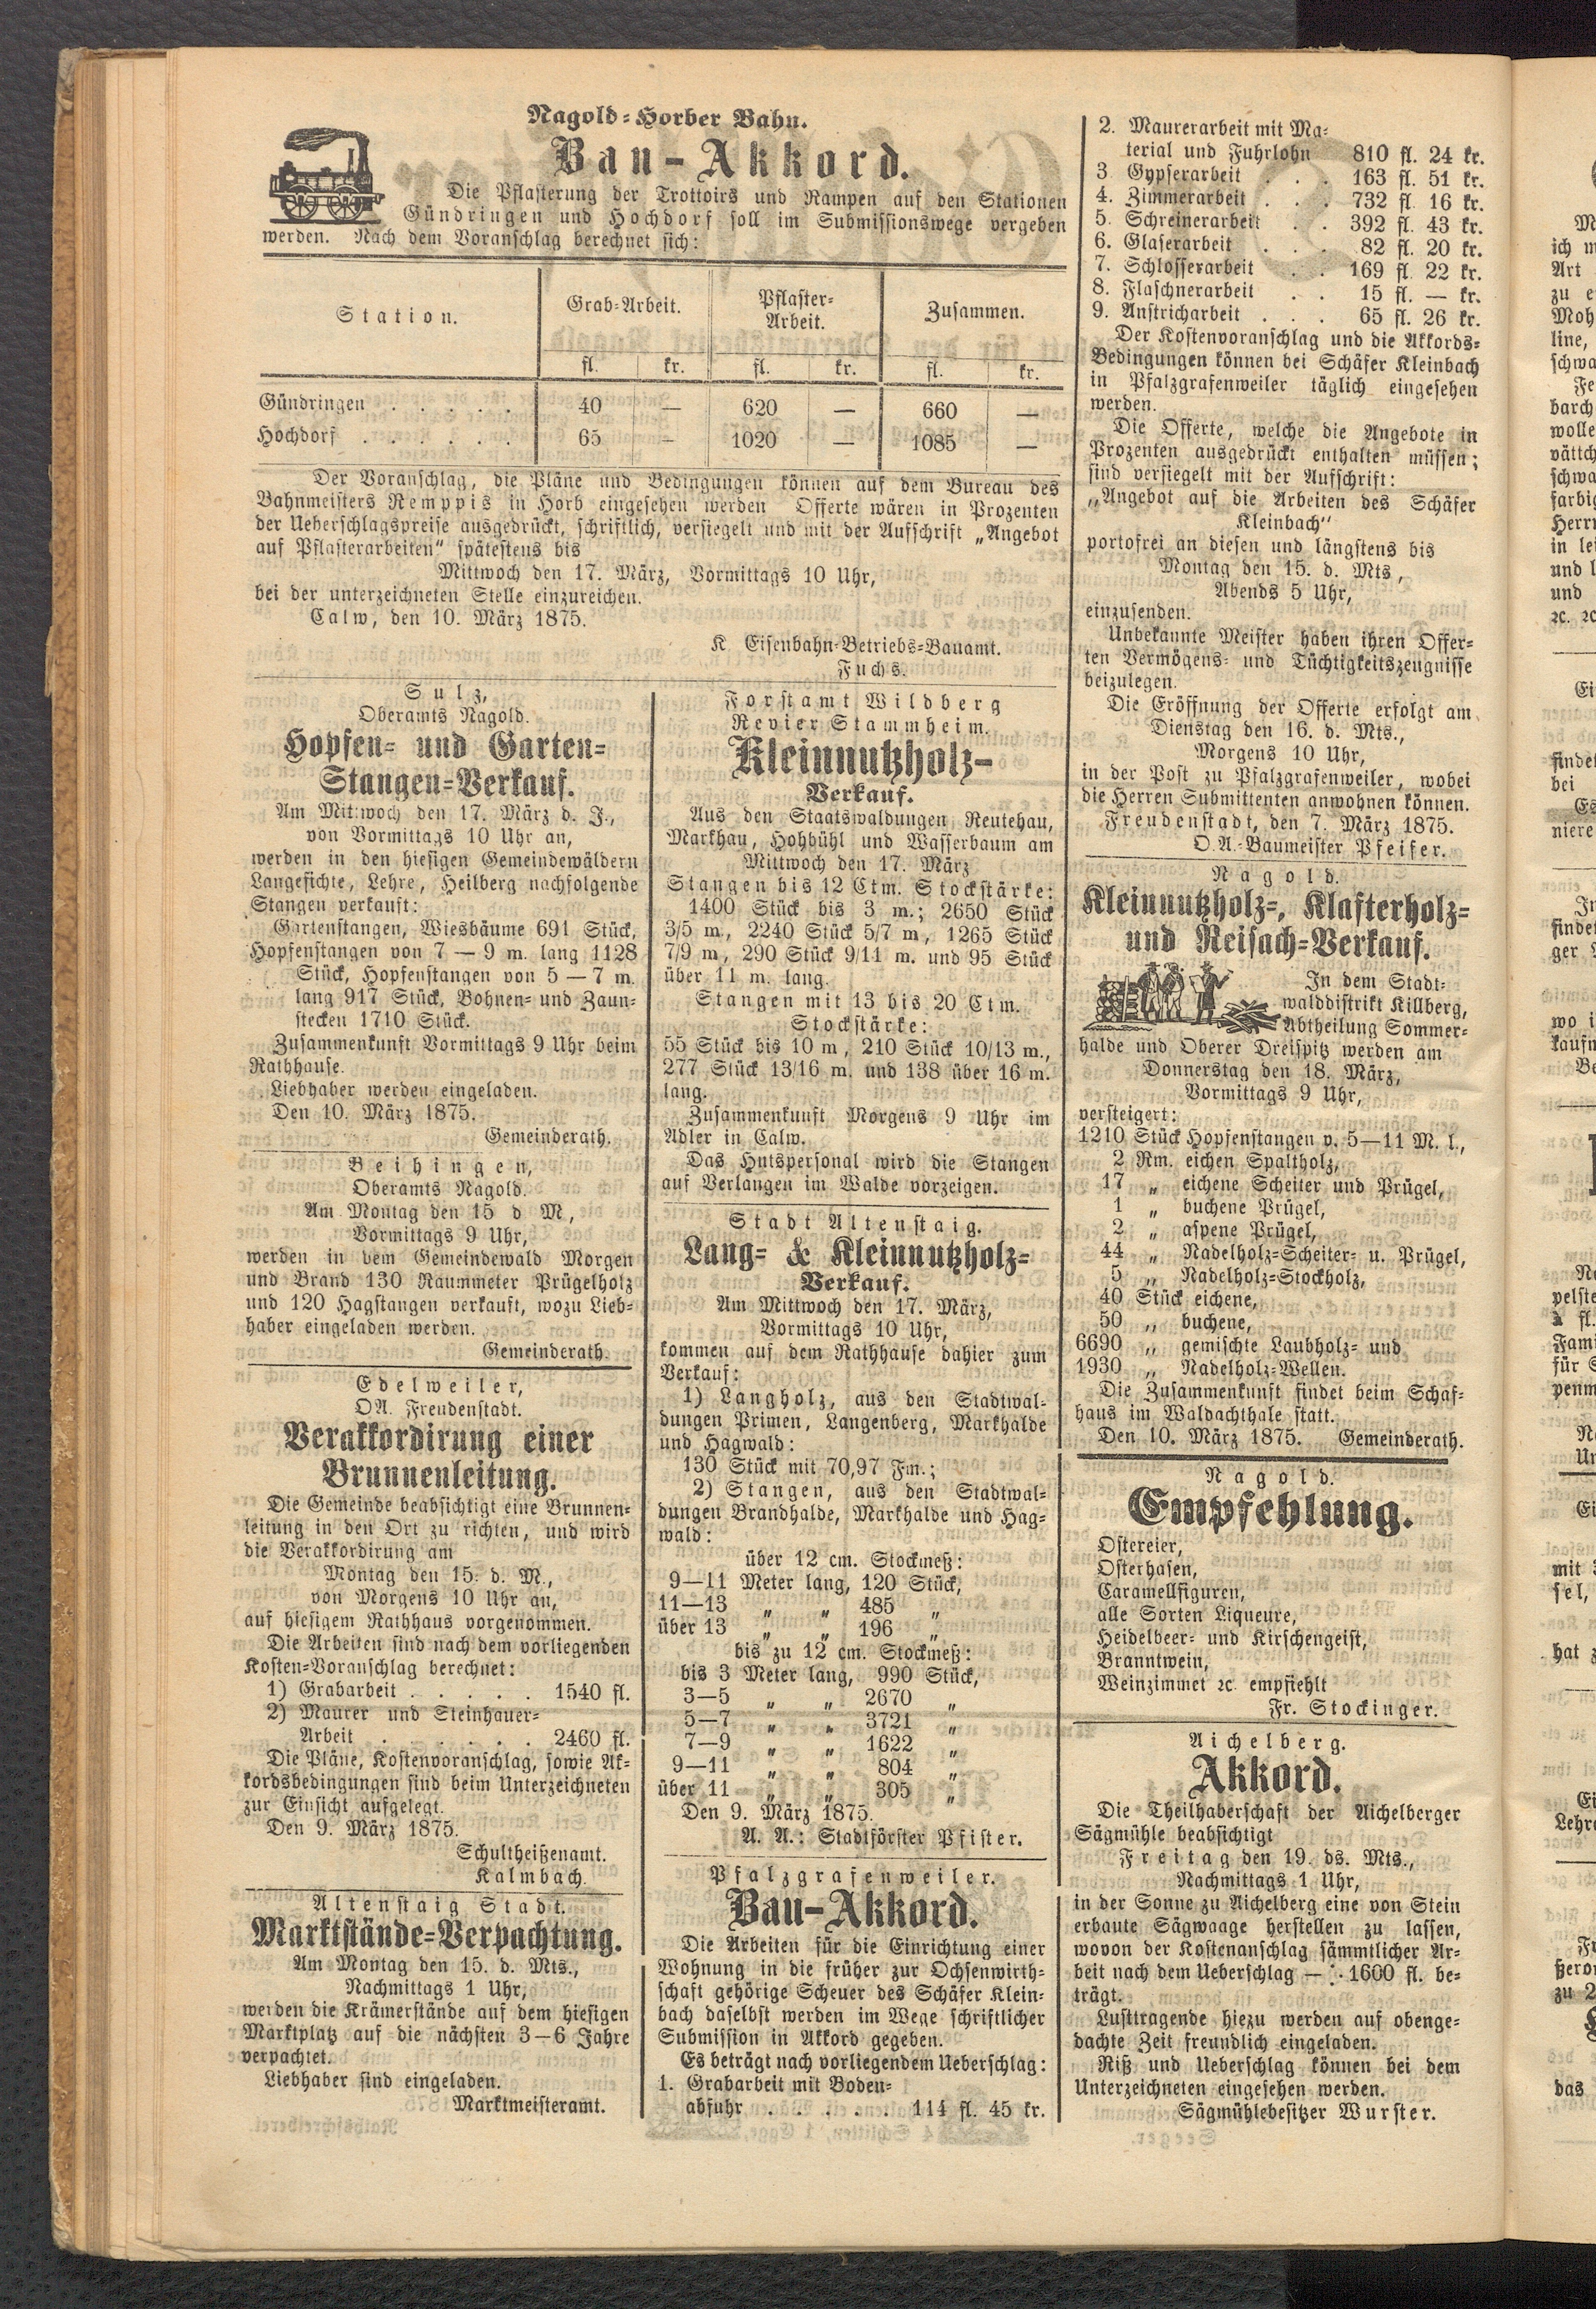 Nagold-Horber Bahn.
Bau-Akkord.
Die Pflasterung der Trottoirs und Rampen auf den Stationen
Gündringen und Hochdorf soll im Submissionswege vergeben
werden. Nach dem Voranschlag berechnet sich:
Station. Grab-Arbeit. Pflaster-Arbeit. Zusammen.
fl. kr. fl. kr. fl. kr.
Gündringen . . . . . 40 — 620 — 660 —
Hochdorf . . . . . . 65 — 1020 — 1085 —
Der Voranschlag, die Pläne und Bedingungen können auf dem Bureau des
Bahnmeisters Remppis in Horb eingesehen werden Offerte wären in Prozenten
der Ueberschlagspreise ausgedrückt, schriftlich, versiegelt und mit der Aufschrift „Angebot
auf Pflasterarbeiten“ spätestens bis
Mittwoch den 17. März, Vormittags 10 Uhr,
bei der unterzeichneten Stelle einzureichen.
Calw, den 10. März 1875.
K Eisenbahn-Betriebs-Bauamt.
Fuchs.
Sulz,
Oberamts Nagold.
Hopfen- und Garten-
Stangen-Verkauf.
Am Mittwoch den 17. März d. J.,
von Vormittags 10 Uhr an,
werden in den hiesigen Gemeindewäldern
Langefichte, Lehre, Heilberg nachfolgende
Stangen verkauft:
Gartenstangen, Wiesbäume 691 Stück,
Hopfenstangen von 7 — 9 m. lang 1128
Stück, Hopfenstangen von 5 — 7 m.
lang 917 Stück, Bohnen- und Zaun-
stecken 1710 Stück.
Zusammenkunft Vormittags 9 Uhr beim
Rathhause.
Liebhaber werden eingeladen.
Den 10. März 1875.
Gemeinderath.
Beihingen,
Oberamts Nagold.
Am Montag den 15 d M,
Vormittags 9 Uhr,
werden in dem Gemeindewald Morgen
und Brand 130 Raummeter Prügelholz
und 120 Hagstangen verkauft, wozu Lieb-
haber eingeladen werden.
Gemeinderath.
Edelweiler,
OA. Freudenstadt.
Verakkordirung einer
Brunnenleitung.
Die Gemeinde beabsichtigt eine Brunnen-
leitung in den Ort zu richten, und wird
die Verakkordirung am
Montag den 15. d. M.,
von Morgens 10 Uhr an,
auf hiesigem Rathhaus vorgenommen.
Die Arbeiten sind nach dem vorliegenden
Kosten-Voranschlag berechnet:
1) Grabarbeit . . . . . 1540 fl.
2) Maurer und Steinhauer-
Arbeit . . . . . . 2460 fl.
Die Pläne, Kostenvoranschlag, sowie Ak-
kordsbedingungen sind beim Unterzeichneten
zur Einsicht aufgelegt.
Den 9. März 1875.
Schultheißenamt.
Kalmbach.
Altenstaig Stadt.
Marktstände-Verpachtung.
Am Montag den 15. d. Mts.,
Nachmittags 1 Uhr,
werden die Krämerstände auf dem hiesigen
Marktplatz auf die nächsten 3—6 Jahre
verpachtet.
Liebhaber sind eingeladen.
Marktmeisteramt.
Forstamt Wildberg
Revier Stammheim.
Kleinnutzholz-
Verkauf.
Aus den Staatswaldungen Reutehau,
Markhau, Hohbühl und Wasserbaum am
Mittwoch den 17. März
Stangen bis 12 Ctm. Stockstärke:
1400 Stück bis 3 m.; 2650 Stück
3/5 m., 2240 Stück 5/7 m, 1265 Stück
7/9 m, 290 Stück 9/11 m. und 95 Stück
über 11 m. lang.
Stangen mit 13 bis 20 Ctm.
Stockstärke:
55 Stück bis 10 m, 210 Stück 10/13 m.,
277 Stück 13/16 m. und 138 über 16 m.
lang.
Zusammenkunft Morgens 9 Uhr im
Adler in Calw.
Das Hutspersonal wird die Stangen
auf Verlangen im Walde vorzeigen.
Stadt Altenstaig.
Lang- & Kleinnutzholz-
Verkauf.
Am Mittwoch den 17. März,
Vormittags 10 Uhr,
kommen auf dem Rathhause dahier zum
Verkauf:
1) Langholz, aus den Stadtwal-
dungen Primen, Langenberg, Markhalde
und Hagwald:
130 Stück mit 70,97 Fm.;
2) Stangen, aus den Stadtwal-
dungen Brandhalde, Markhalde und Hag-
wald:
über 12 cm. Stockmeß:
9—11 Meter lang, 120 Stück,
11—13 „ „ 485 „
über 13 „ „ 196 „
bis zu 12 cm. Stockmeß:
bis 3 Meter lang, 990 Stück,
3—5 „ „ 2670 „
5—7 „ „ 3721 „
7—9 „ „ 1622 „
9—11 „ „ 804 „
über 11 „ „ 305 „
Den 9. März 1875.
A. A.: Stadtförster Pfister.
Pfalzgrafenweiler.
Bau-Akkord.
Die Arbeiten für die Einrichtung einer
Wohnung in die früher zur Ochsenwirth-
schaft gehörige Scheuer des Schäfer Klein-
bach daselbst werden im Wege schriftlicher
Submission in Akkord gegeben.
Es beträgt nach vorliegendem Ueberschlag:
1. Grabarbeit mit Boden-
abfuhr . . . . . 114 fl. 45 kr.
2. Maurerarbeit mit Ma-
terial und Fuhrlohn 810 fl. 24 kr.
3 Gypserarbeit . . . 163 fl. 51 kr.
4. Zimmerarbeit . . . 732 fl. 16 kr.
5. Schreinerarbeit . . 392 fl. 43 kr.
6. Glaserarbeit . . . 82 fl. 20 kr.
7. Schlosserarbeit . . 169 fl. 22 kr.
8. Flaschnerarbeit . . 15 fl. — kr.
9. Anstricharbeit . . . 65 fl. 26 kr.
Der Kostenvoranschlag und die Akkords-
Bedingungen können bei Schäfer Kleinbach
in Pfalzgrafenweiler täglich eingesehen
werden.
Die Offerte, welche die Angebote in
Prozenten ausgedrückt enthalten müssen;
sind versiegelt mit der Aufschrift:
„Angebot auf die Arbeiten des Schäfer
Kleinbach“
portofrei an diesen und längstens bis
Montag den 15. d. Mts,
Abends 5 Uhr,
einzusenden.
Unbekannte Meister haben ihren Offer-
ten Vermögens- und Tüchtigkeitszeugnisse
beizulegen.
Die Eröffnung der Offerte erfolgt am
Dienstag den 16. d. Mts.,
Morgens 10 Uhr,
in der Post zu Pfalzgrafenweiler, wobei
die Herren Submittenten anwohnen können.
Freudenstadt, den 7. März 1875.
O.A.-Baumeister Pfeifer.
Nagold.
Kleinnutzholz-, Klafterholz-
und Reisach-Verkauf.
In dem Stadt-
walddistrikt Killberg,
Abtheilung Sommer-
halde und Oberer Dreispitz werden am
Donnerstag den 18. März,
Vormittags 9 Uhr,
versteigert:
1210 Stück Hopfenstangen v. 5—11 M. l.,
2 Rm. eichen Spaltholz,
17 „ eichene Scheiter und Prügel,
1 „ buchene Prügel,
2 „ aspene Prügel,
44 „ Nadelholz-Scheiter- u. Prügel,
5 „ Nadelholz-Stockholz,
40 Stück eichene,
50 „ buchene,
6690 „ gemischte Laubholz- und
1930 „ Nadelholz-Wellen.
Die Zusammenkunft findet beim Schaf-
haus im Waldachthale statt.
Den 10. März 1875. Gemeinderath.
Nagold.
Empfehlung.
Ostereier,
Osterhasen,
Caramellfiguren,
alle Sorten Liqueure,
Heidelbeer- und Kirschengeist,
Branntwein,
Weinzimmet ꝛc. empfiehlt
Fr. Stockinger.
Aichelberg.
Akkord.
Die Theilhaberschaft der Aichelberger
Sägmühle beabsichtigt
Freitag den 19. ds. Mts.,
Nachmittags 1 Uhr,
in der Sonne zu Aichelberg eine von Stein
erbaute Sägwaage herstellen zu lassen,
wovon der Kostenanschlag sämmtlicher Ar-
beit nach dem Ueberschlag — 1600 fl. be-
trägt.
Lusttragende hiezu werden auf obenge-
dachte Zeit freundlich eingeladen.
Riß und Ueberschlag können bei dem
Unterzeichneten eingesehen werden.
Sägmühlebesitzer Wurster.